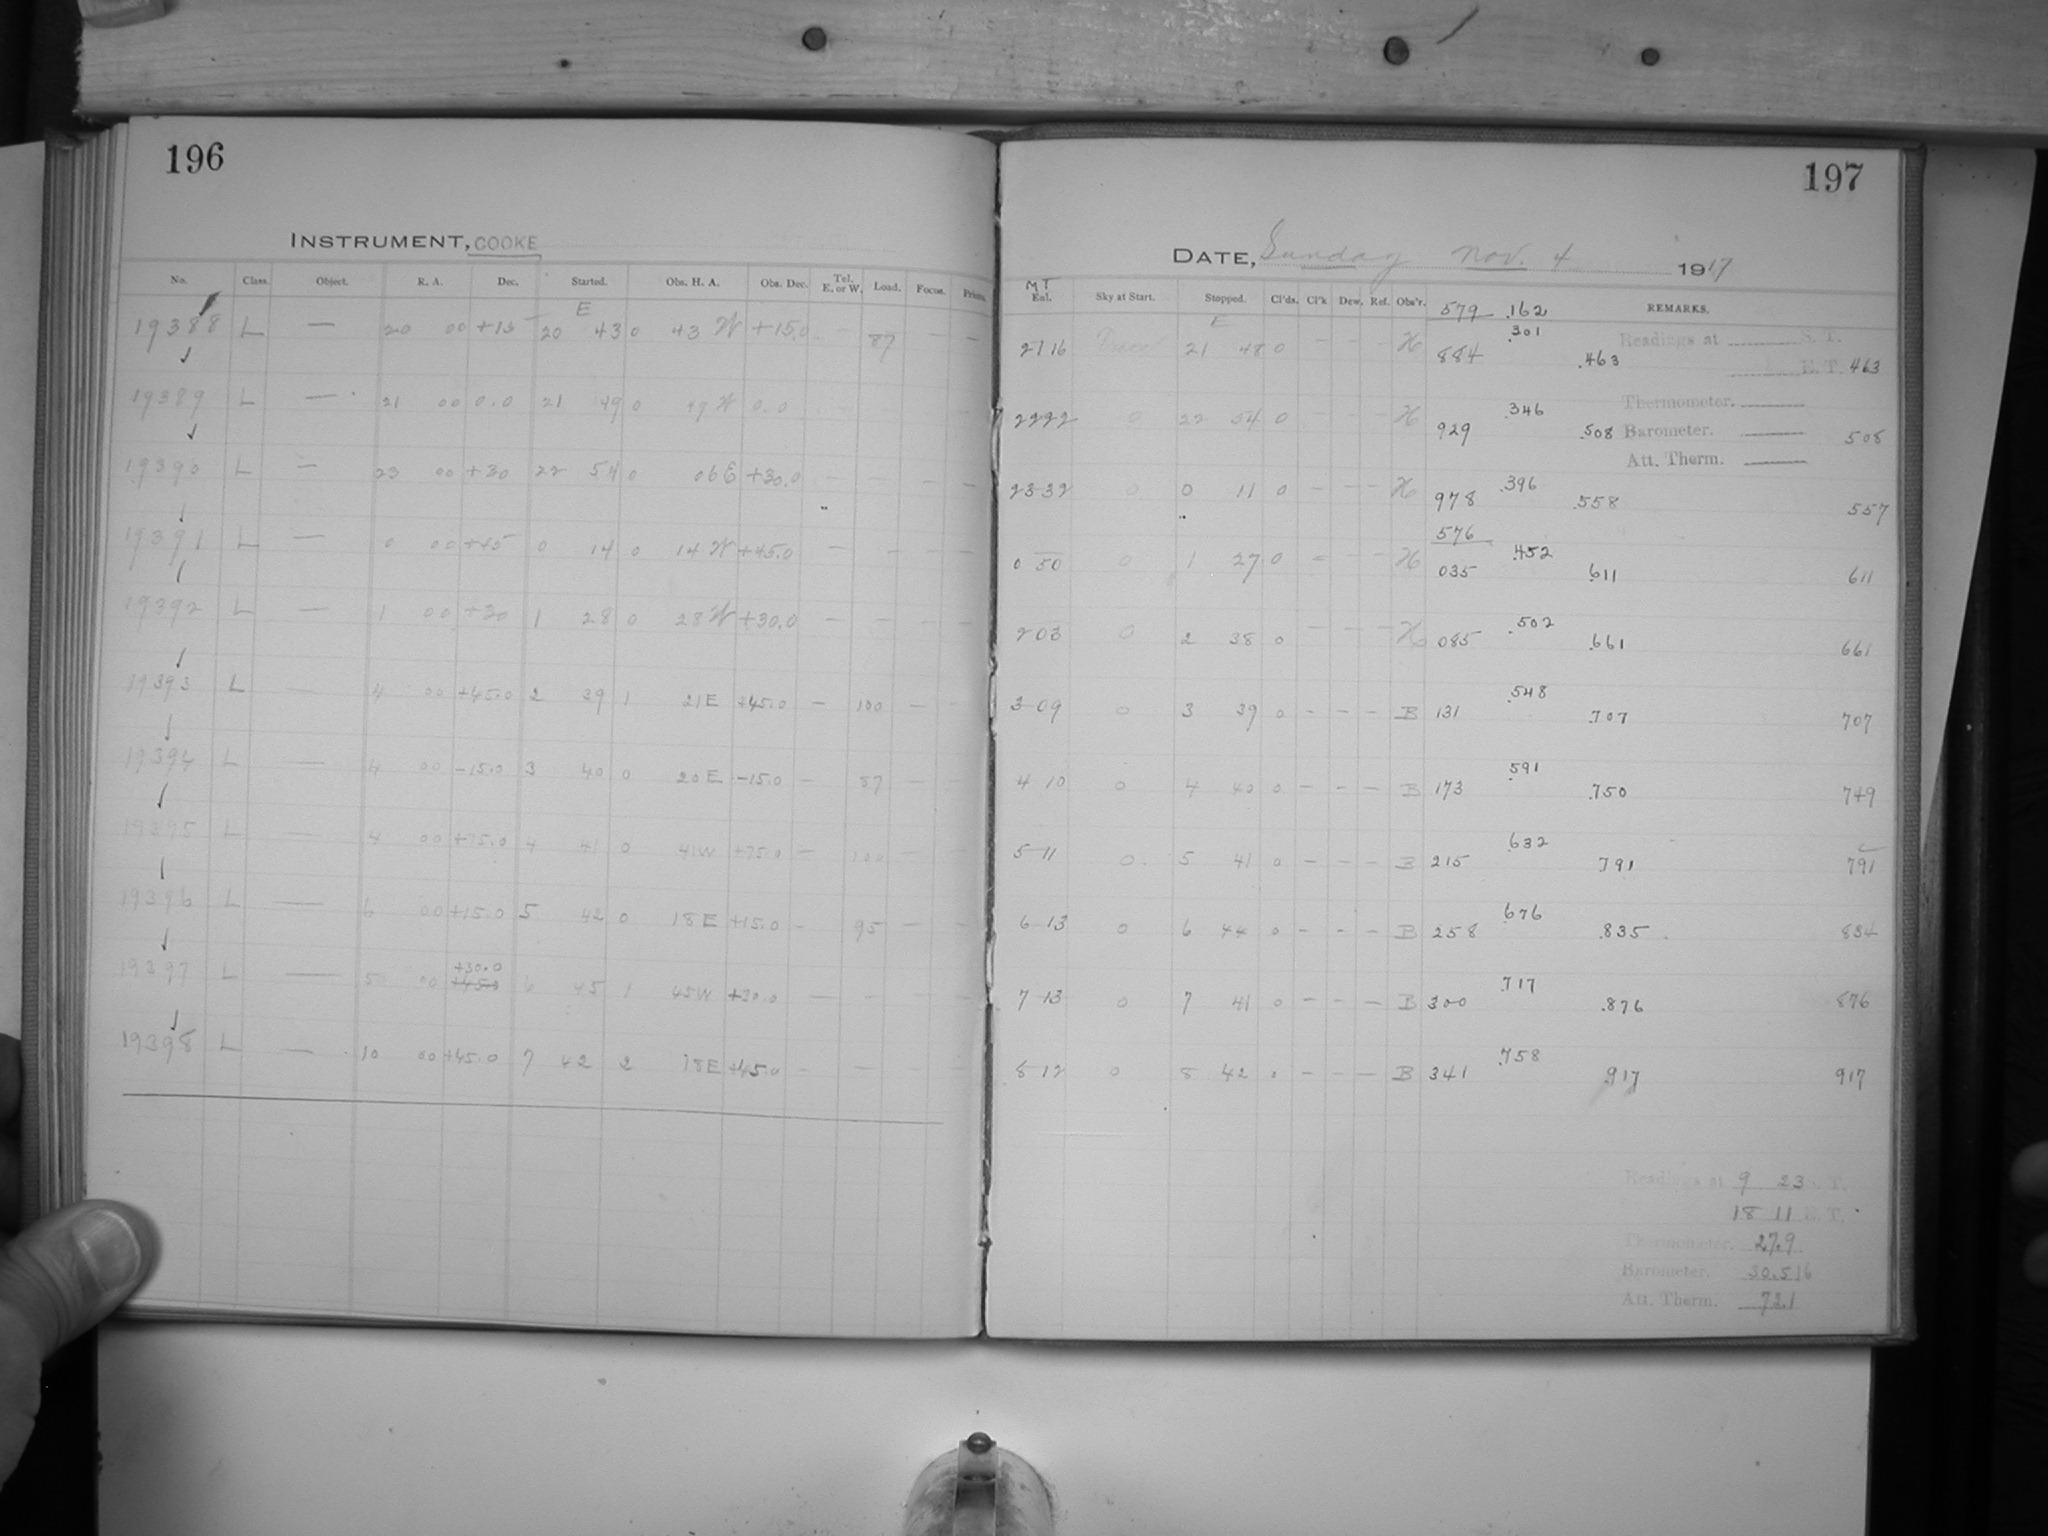 196
INSTRUMENT, COOKE
No. Class. Object. R. A. Dec. Started. Obs. H. A. Obs. Dec. Tel. E. or W. Load. Focus. Prisms.
E
19388 L — 20 00 +15 20 43 0 43 W +15.0 87 — —
19389 L — 21 00 0.0 21 49 0 49 W 0.0
19390 L — 23 00 +30 22 54 0 06 E +30.0 — — — —
19391 L — 0 00 +45 0 14 0 14 W +45.0 — — — —
19392 L — 1 00 +30 1 28 0 28 W +30.0 — — — —
19393 L — 4 00 +45.0 2 39 1 21 E +45.0 — 100 — —
19394 L — 4 00 -15.0 3 40 0 20 E -15.0 — 87 — —
19395 L — 4 00 +75.0 4 41 0 41 W +75.0 — 100 — —
19396 L — 6 00 +15.0 5 42 0 18 E +15.0 - 95 — —
+30.0
19397 L — 5 00 +45.0 6 45 1 45 W +30.0 — — — —
19398 L — 10 00 +45.0 7 42 2 18 E +45.0 - — — —
197
DATE, Sunday Nov. 4 1917
MT
Eal. Sky at Start. Stopped. Cl'ds. Cl'k Dew. Ref. Obs'r. 579 .162 REMARKS.
E .301 Readings at S. T.
21 16 21 48 0 — — — H 884 .463 E. T. 463
.346 Thermometer.
22 22 0 22 54 0 — — — H 929 .508 Barometer. 508
Att. Therm.
23 32 0 0 11 0 — — — H 978 .396 .558 557
576
0 50 0 1 27 0 — — — H 035 .452 .611 611
2 03 0 2 38 0 — — — H 085 .502 .661 661
3 09 0 3 39 0 — — — B 131 .548 .707 707
4 10 0 4 40 0 — — — B 173 .591 .750 749
5 11 0 5 41 0 — — — B 215 .632 .791 791
6 13 0 6 44 0 — — — B 258 .676 .835 834
7 13 0 7 41 0 — — — B 300 .717 .876 876
8 12 0 8 42 0 — — — B 341 .758 .917 917
Readings at 9 23 S. T.
18 11 E. T.
Thermometer. 27.9
Barometer. 30.516
Att. Therm. 72.1